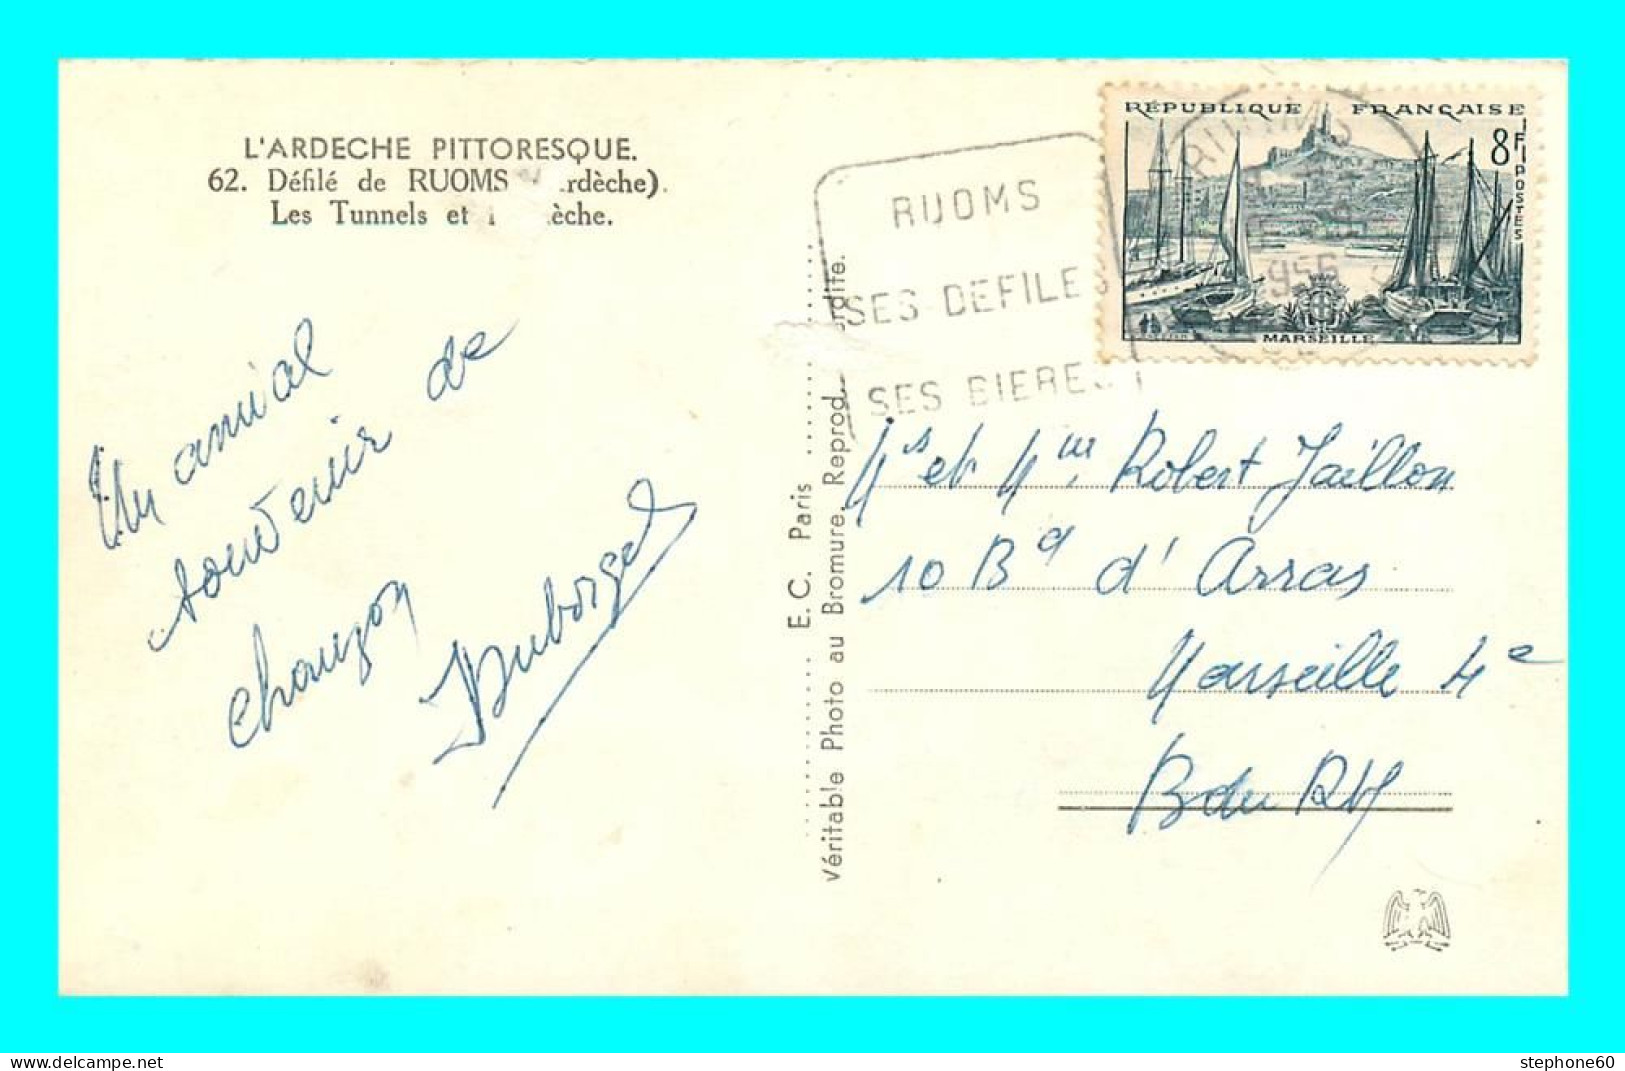 L'ARDECHE PITTORESQUE.
62. Défilé de RUOMS rdèche).
Les Tunnels et èche.
Un amical
souvenir de
Chauzon
Duborgel
E. C. Paris
Véritable Photo au Bromure. Reprod. rdite.
RUOMS
SES DEFILES
SES BIERES
RÉPUBLIQUE FRANÇAISE
8F
POSTES
MARSEILLE
RUOMS
1956
Mr et Mme Robert Jaillon
10 Bd d'Arras
Marseille 4e
B du RH
www.delcampe.net
stephone60